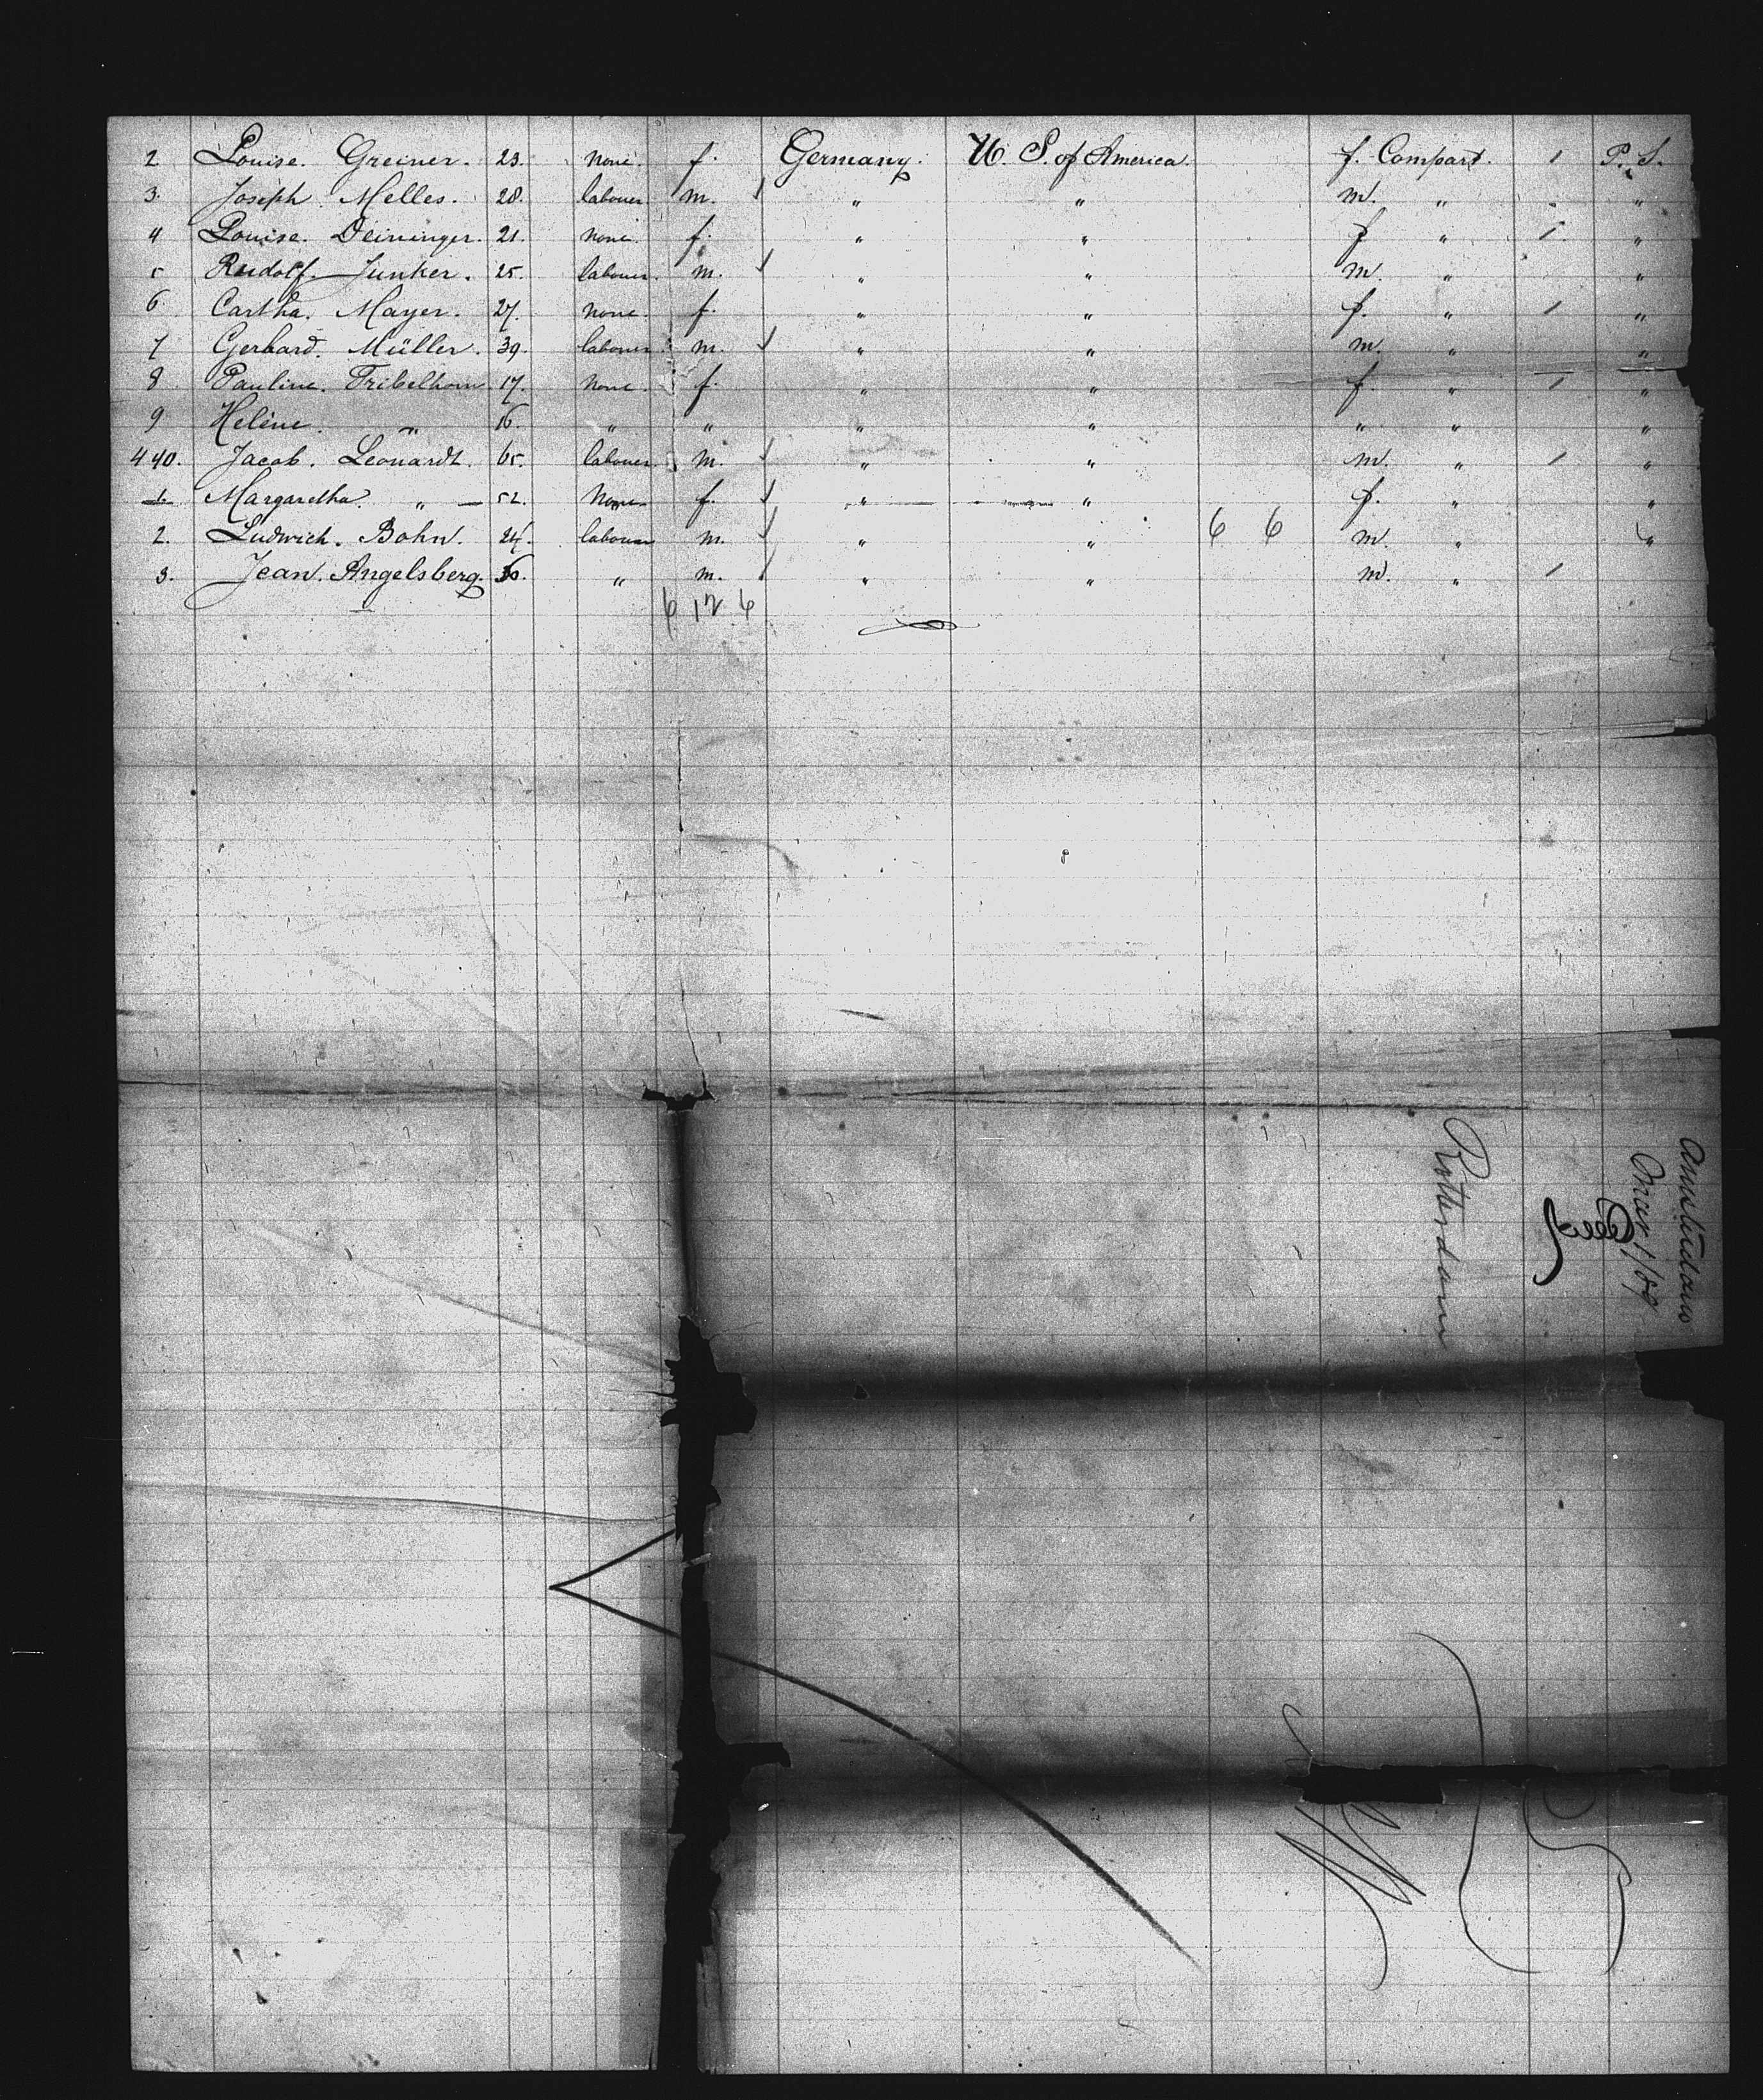 2 Louise. Greiner. 23. none. f. Germany. U. S. of America. f. Compart. 1 P. S.
3. Joseph. Melles. 28. labourer. m. " " m. " "
4 Louise. Deininger. 21. none. f. " " f " 1 "
5 Rudolf. Junker. 25. labourer. m. " " m. " "
6 Cartha. Mayer. 27. none. f. " " f. " 1 "
7 Gerhard. Müller. 39. labourer m. " " m. " "
8 Pauline. Tribelhorn 17. none. f. " " f. " 1 "
9 Helène. " 16. " " " " " " "
440. Jacob. Leonardt. 65. labourer. m. " " m. " 1 "
1. Margaretha. " 52. none f. " " f. " "
2. Ludwich. Bohn. 24. labourer m. " " 6 6 m. " "
3. Jean. Angelsberg. " m. " " m. " 1
6 12 6
Amsterdam
Mar 1/89
Rotterdam